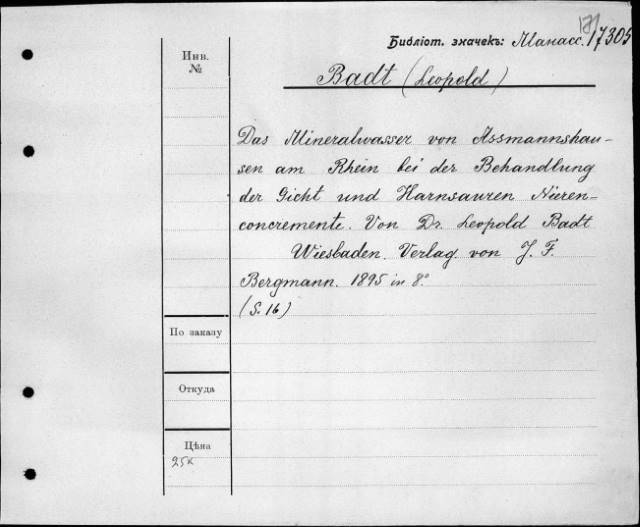 Библіот. значекъ: Манасс. 17305
Инв.
№
Badt (Leopold)
Das Mineralwasser von Assmannshau-
sen am Rhein bei der Behandlung
der Gicht und Harnsauren Nieren-
concremente. Von Dr. Leopold Badt
Wiesbaden. Verlag von J. F.
Bergmann. 1895 in 8°
(S. 16)
По заказу
Откуда
Цѣна
25к